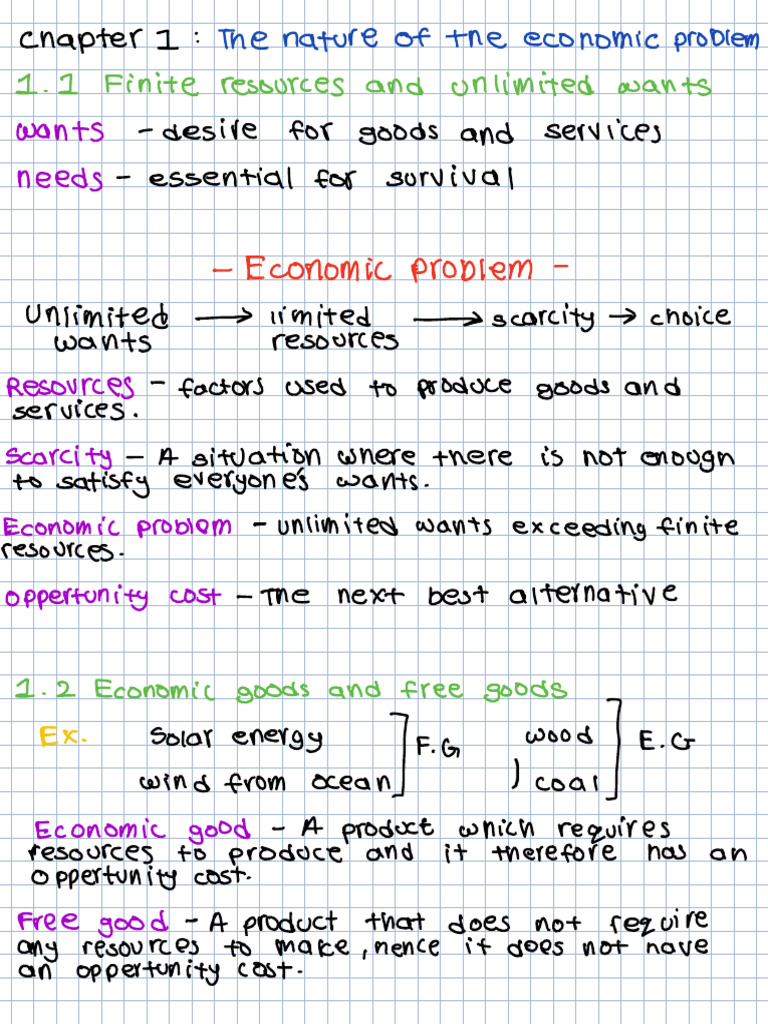 chapter 1 : The nature of the economic problem
1.1 Finite resources and unlimited wants
wants - desire for goods and services
needs - essential for survival
- Economic problem -
Unlimited wants → limited resources → scarcity → choice
Resources - factors used to produce goods and
services.
Scarcity - A situation where there is not enough
to satisfy everyone's wants.
Economic problem - unlimited wants exceeding finite
resources.
oppertunity cost - The next best alternative
1.2 Economic goods and free goods
Ex. Solar energy ] F.G wood ] E.G
wind from ocean ) coal
Economic good - A product which requires
resources to produce and it therefore has an
oppertunity cost.
Free good - A product that does not require
any resources to make, hence it does not have
an oppertunity cost.